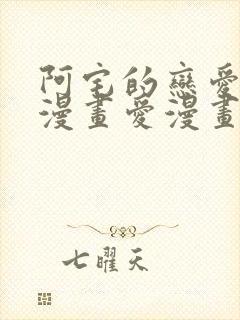 阿宅的戀愛
漫畫愛漫畫
七曜天